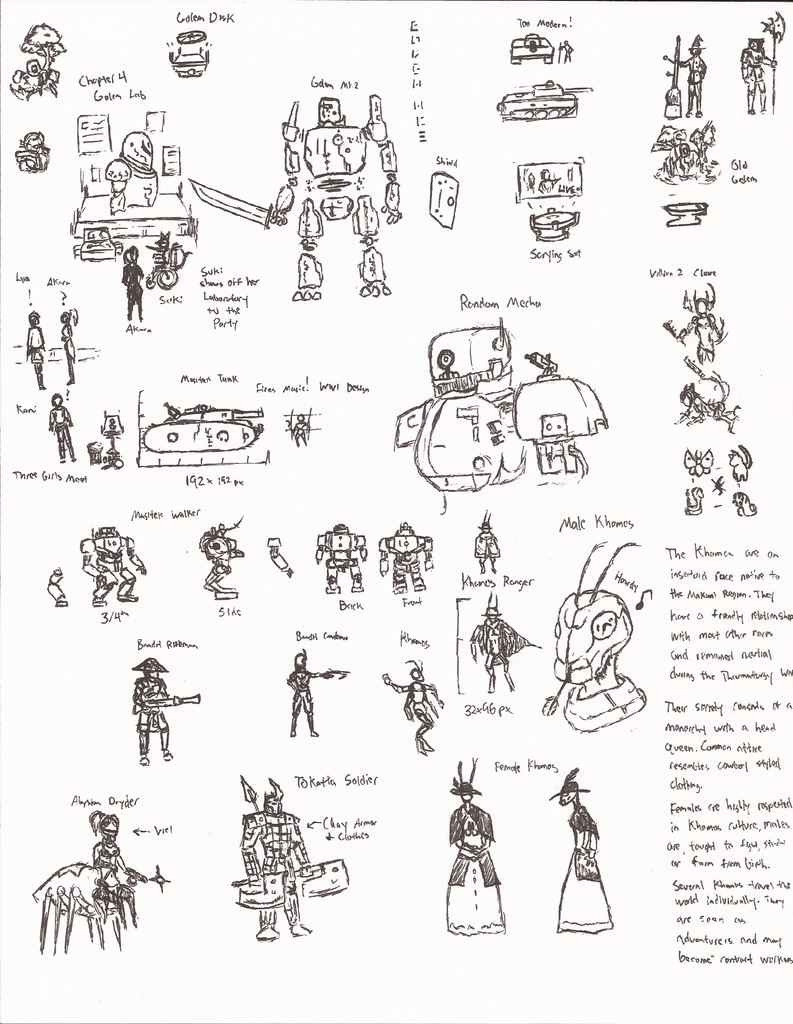 Golem Disk
Too Modern!
Chapter 4
Golem Lab
Golem Mk.2
Shield
Old
Golem
LIVE
Scrying Set
Suki
shows off her
Laboratory
to the
Party
Suki
Akura
Akura
!
?
Villain 2 Claire
Random Mecha
Magitek Tank
Fires Magic! WW1 Design
?
Kani
Three Girls Meet
192 x 192 px
Magitek Walker
3/4th
Side
Back
Front
Khomos Ranger
32x96 px
Male Khomos
Howdy
The Khomos are an
insectoid race native to
the Makuni Region. They
have a friendly relationship
with most other races
and remained neutral
during the Thaumaturgy
Bandit Rifleman
Bandit Crossbow
Khomos
Their society consists of a
monarchy with a head
Queen. Common attire
resembles cowboy styled
clothing.
Females are highly respected
in Khomos culture, males
are taught to fight, study
or farm from birth.
Several Khomos travel the
world individually. They
are seen as
Adventurers and may
become contract workers
Abyssian Dryder
← Veil
Tokatta Soldier
← Clay Armor
+ Clothes
Female Khomos